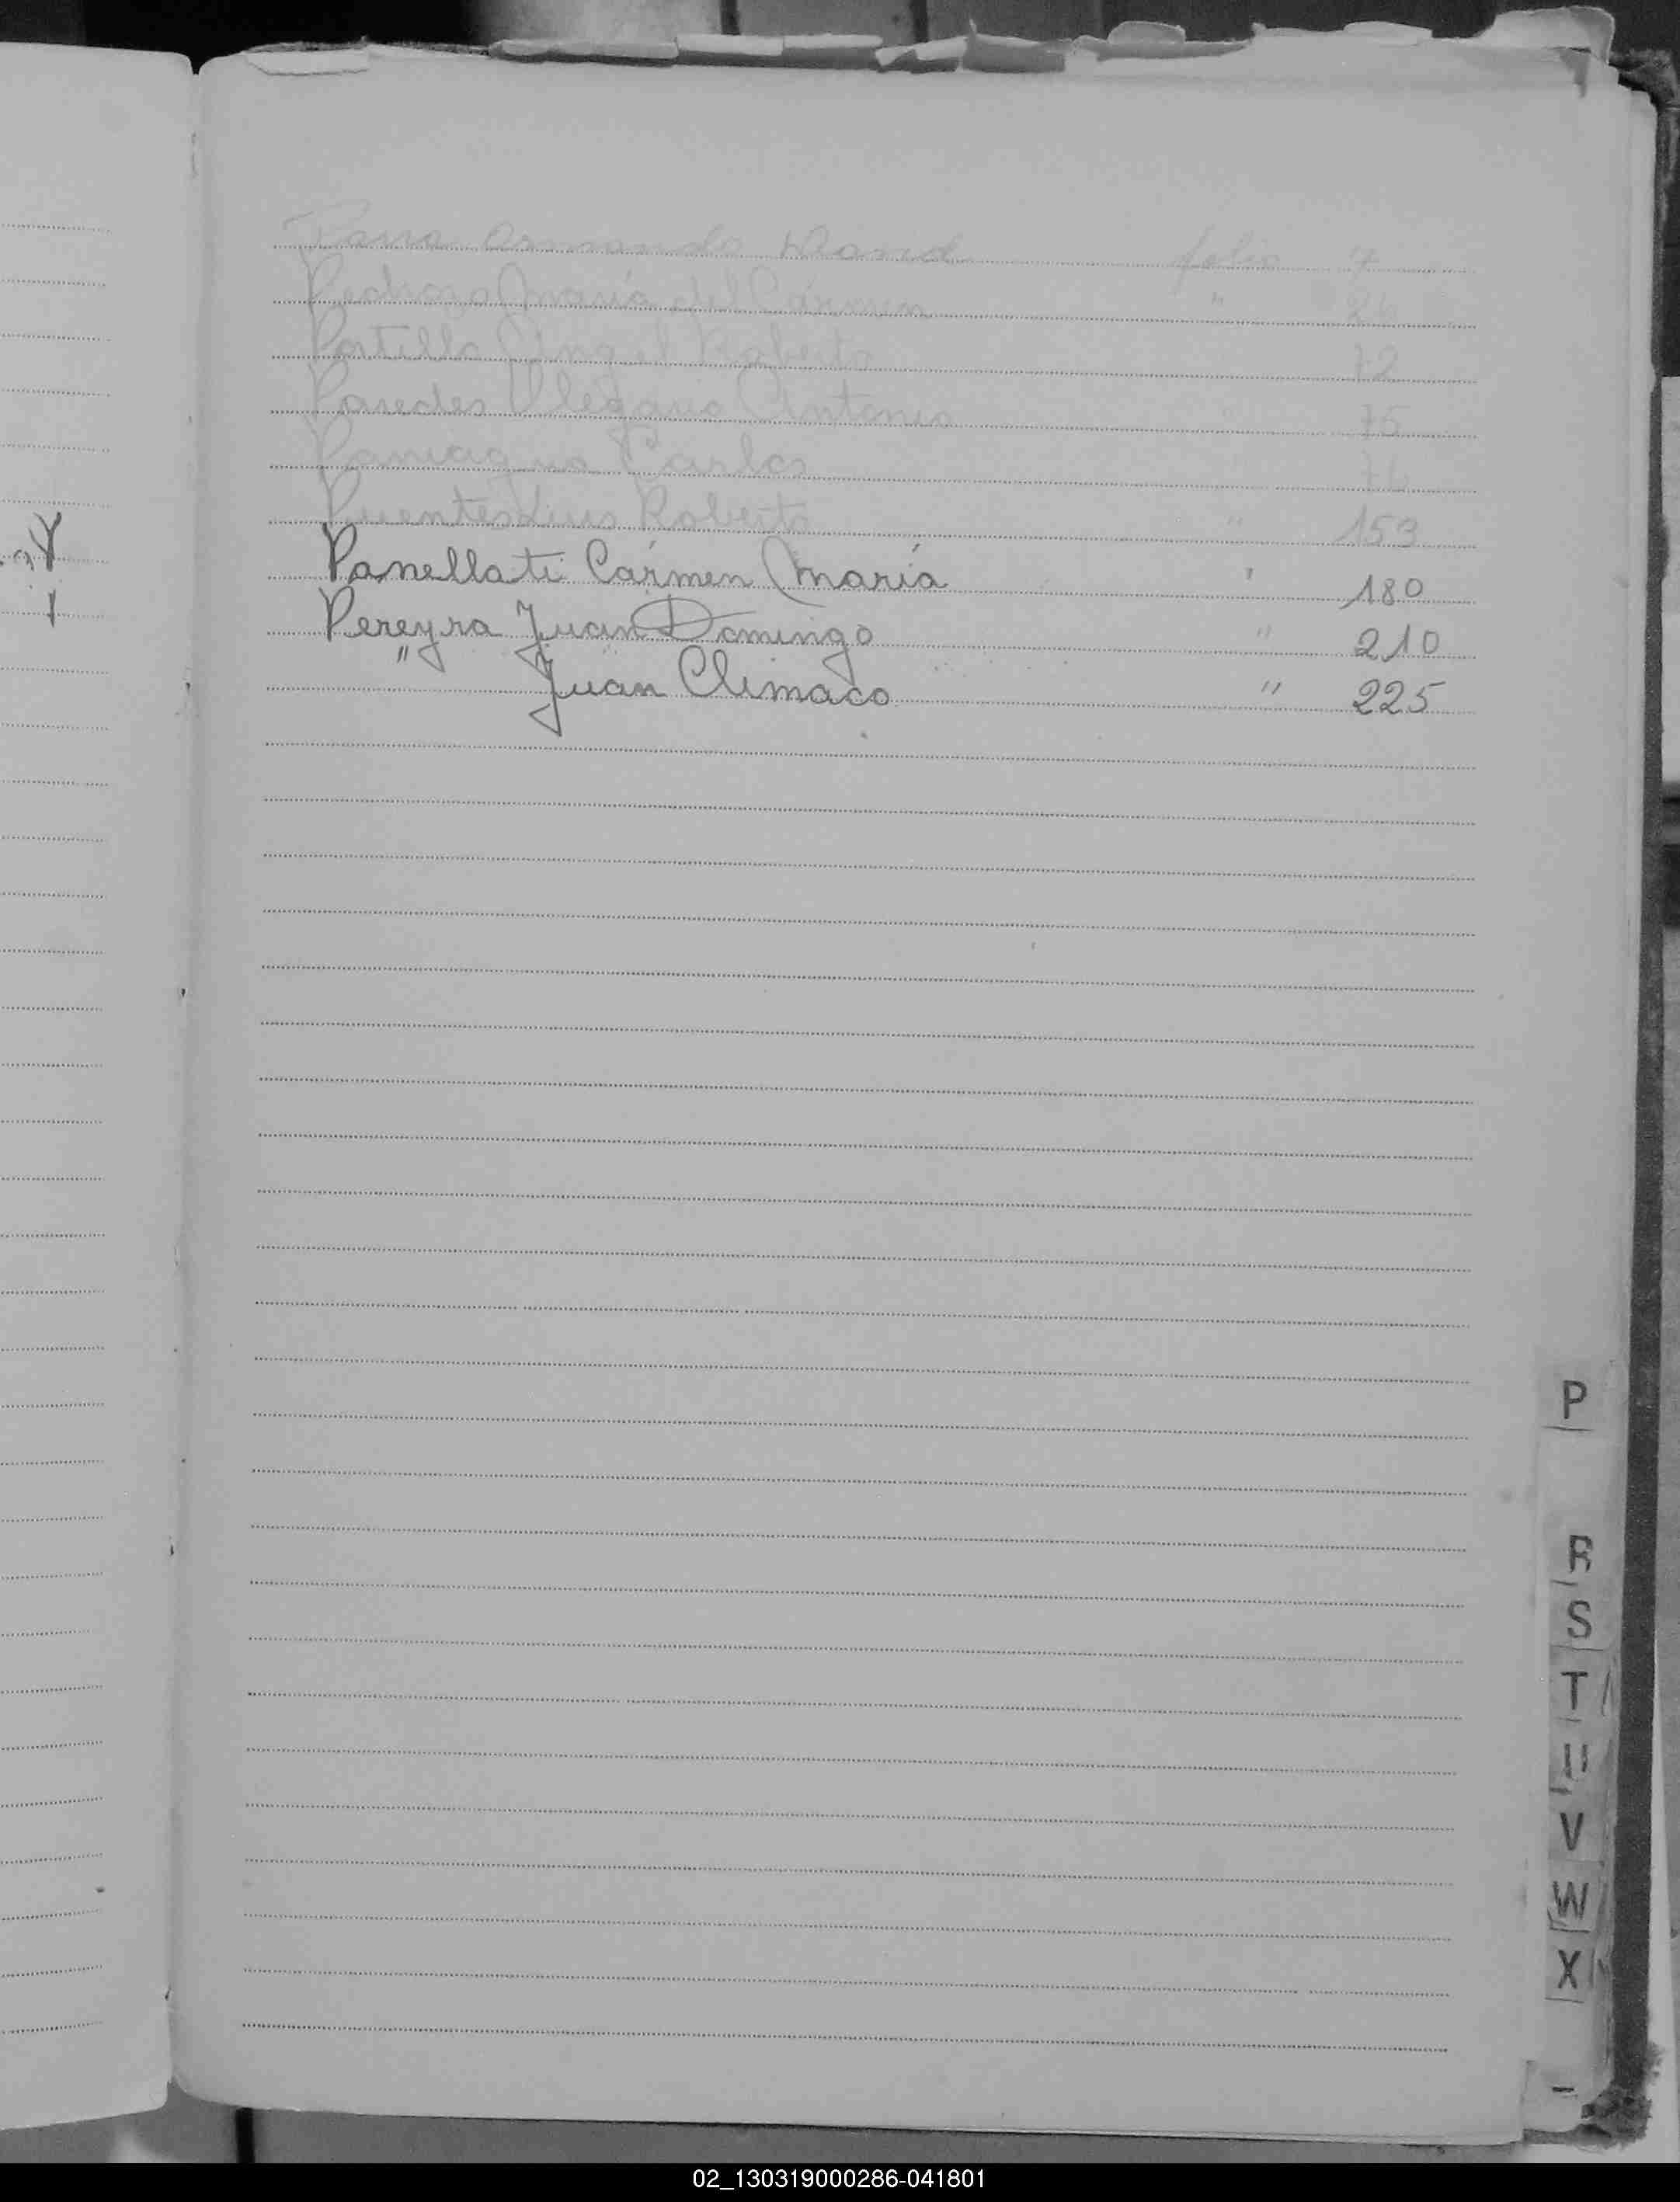 Armando folio 7
Pedrozo María del Cármen " 26
Portillo Angel Roberto 72
Paredes Olegario Antonio 75
Paniagua Carlos 76
Puentes Luis Roberto " 153
Panellati Cármen María " 180
Pereyra Juan Domingo " 210
" Juan Climaco " 225
P
R
S
T
U
V
W
X
02_130319000286-041801